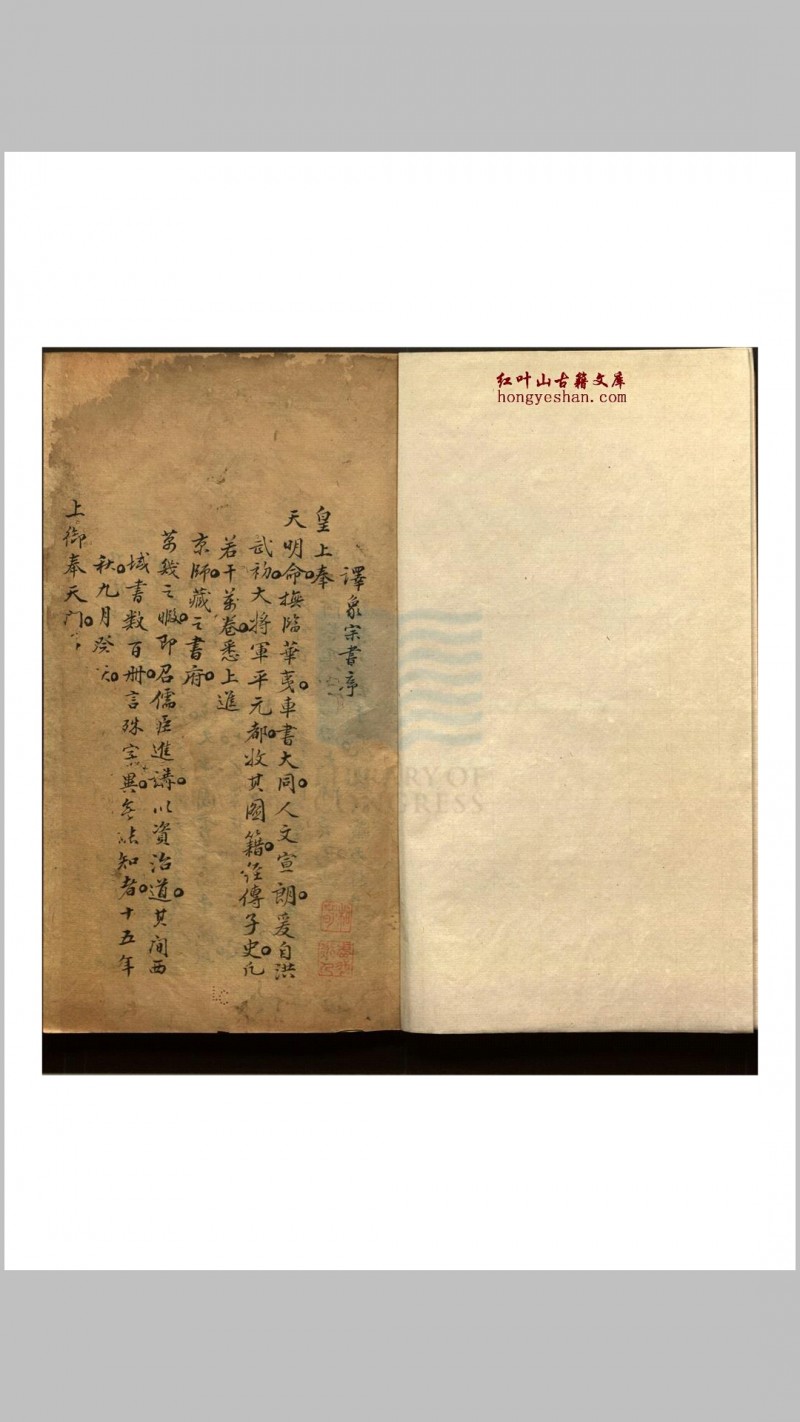 红叶山古籍文库
hongyeshan.com
譯象宗書序
皇上奉
天明命撫臨華夷車書大同人文宣朗爰自洪
武初大將軍平元都收其圖籍經傳子史凡
若干萬卷悉上進
京師藏之書府
萬幾之暇即召儒臣進講以資治道其間西
域書數百冊言殊字異無能知者十五年
秋九月癸亥
上御奉天門
LIBRARY OF
CONGRESS
LC